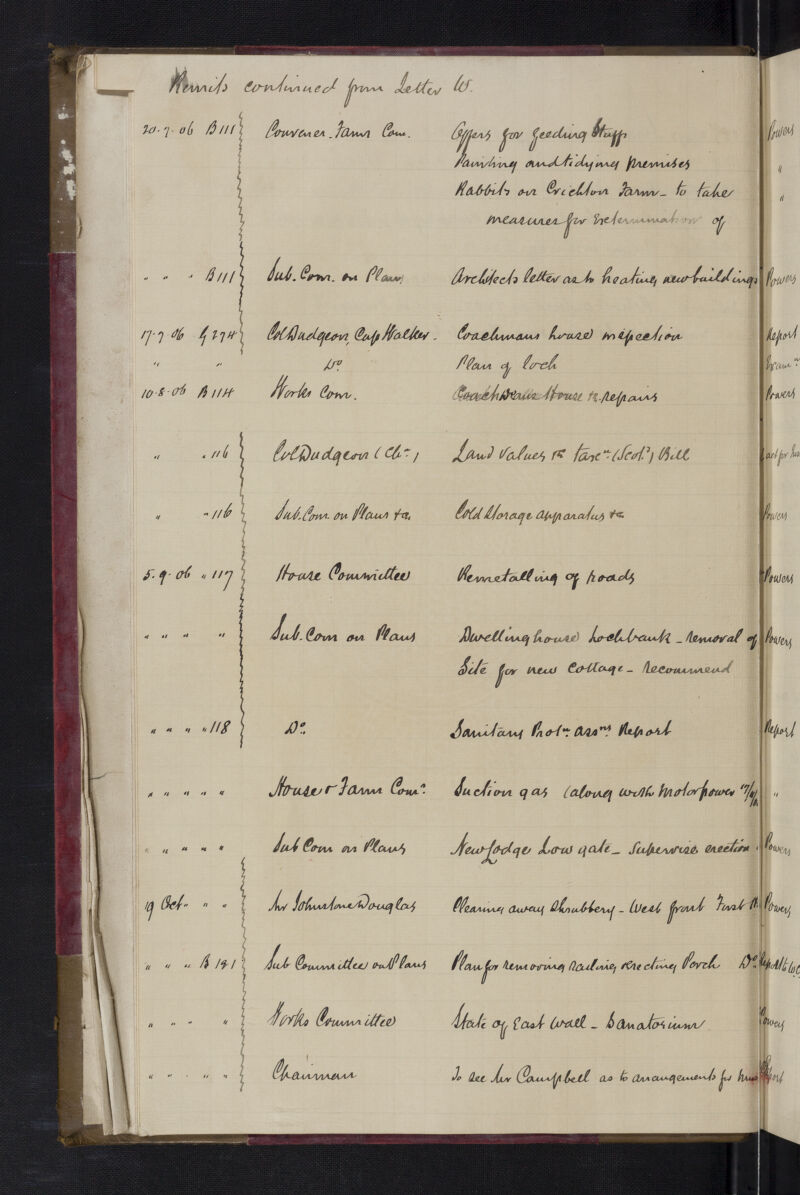 Remits continued from Letter W.
20.7.06 B111 Convener Farm Com. Offers for feeding Stuffs Powers
Painting and tidying premises "
Rabbits on Crichton Farm - to take "
measures for Extermination of
" " " B111 Sub. Com. on Plans Architects letter as to heating new buildings Powers
17.7.06 G274 Col Dudgeon, Cap Walker. Coachmans house inspection Report
" " Do Plan of loch
10.8.06 B114 Works Com. Coachmans House repairs Powers
" " 116 Col Dudgeon (Chn) Land Values &c Taxn (Scotd) Bill
" " 116 Sub. Com. on Plans &c. Cold Storage apparatus &c Powers
5.9.06 " 117 House Committee Remetalling of roads Powers
" " " " Sub. Com on Plans Dwelling house Lochbank - removal of Powers
Site for new Cottage - recommend
" " " " 118 Do. Sanitary Protn. Assns. Report Report
" " " " " House & Farm Comn. Suction gas (along with Motor power "
" " " " " Sub Com on Plans New Lodge Low gate - Supervise erection Powers
19 Oct. " " Mr Johnstone Douglas Clearing away Shrubbery - West front First Powers
" " " B 121 Sub Committee on Plans Plan for removing railing & erecting Porch Do.
" " " " Works Committee State of East Wall - Sanatorium Powers
" " " " Chairman To see Mr Campbell as to arrangements for